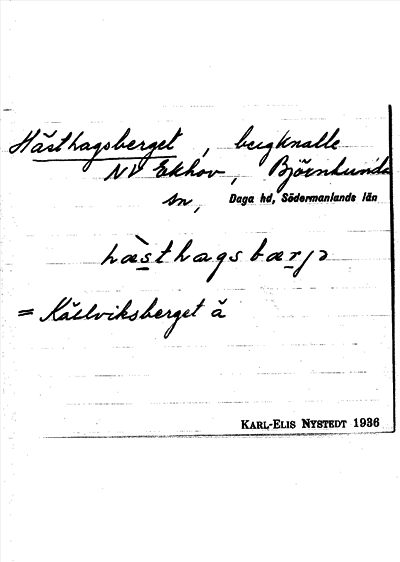 Hästhagsberget, bergknalle
NV Ekhov, Björnlunda
sn, Daga hd, Södermanlands län
= Källviksberget å
KARL-ELIS NYSTEDT 1936